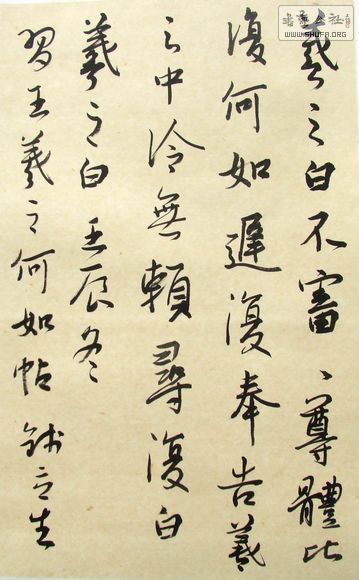 羲之白不審、尊體比
復何如遲復奉告羲
之中冷無賴尋復白
羲之白 壬辰冬
習王羲之何如帖
WWW.SHUFA.ORG